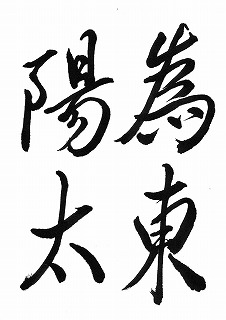 為東
陽太